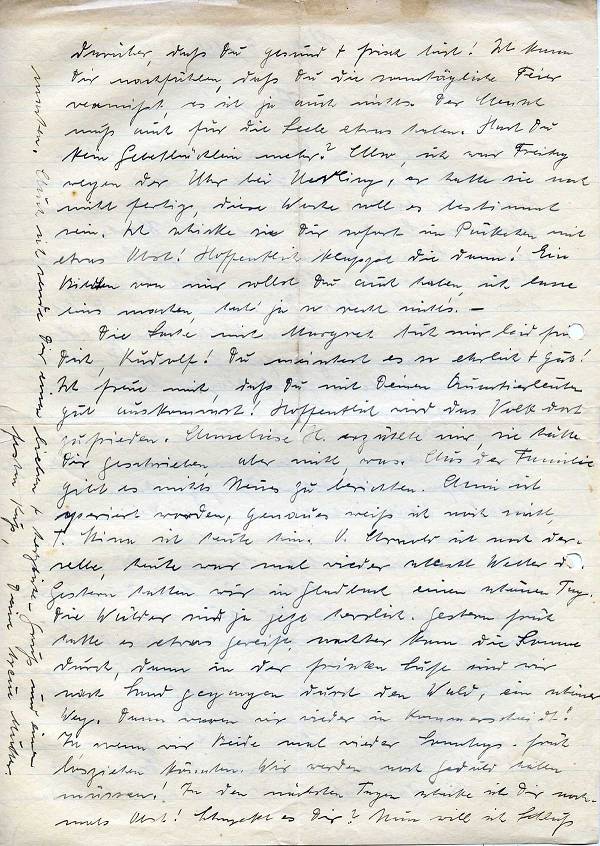 darüber, daß Du gesund + frisch bist! Ich kann
Dir nachfühlen, daß Du die sonntägliche Feier
vermißt, es ist ja auch nichts. Der Mensch
muß auch für die Seele etwas haben. Hast Du
kein Gebetbüchlein mehr? Also, ich war Freitag
wegen der Uhr bei, er hatte sie noch
nicht fertig, diese Woche soll es bestimmt
sein. Ich schicke sie Dir sofort im Päckchen mit
etwas Obst! Hoffentlich klappt die dann! Ein
Bildchen von mir sollst Du auch haben, ich lasse
eins machen, hab' ja so recht nichts. –
Die Sache mit Margret tut mir leid für
Dich, Rudolf! Du meintest es so ehrlich + gut!
Ich freue mich, daß Du mit Deinen Quartierleuten
gut auskommst! Hoffentlich wird das Volk dort
zufrieden. Anneliese H. erzählte mir, sie hätte
Dir geschrieben, aber nicht, was. Aus der Familie
gibt es nichts Neues zu berichten. Anni ist
operiert worden, genaues weiß ich noch nicht,
T. Mina ist heute hin. V. Arnold ist noch der-
selbe, heute war mal wieder schlecht Wetter
Gestern hatten wir in Gladbach einen schönen Tag.
Die Wälder sind ja jetzt herrlich. Gestern früh
hatte es etwas gereift, nachher kam die Sonne
durch, dann in der frischen Luft sind wir
nach Sand gegangen durch den Wald, ein schöner
Weg. Dann waren wir wieder in
Ja wenn wir Beide mal wieder Sonntags-früh
losziehen könnten. Wir werden noch Geduld haben
müssen! In den nächsten Tagen schicke ich Dir noch-
mals Obst! Schmeckt es Dir? Nun will ich Schluß
machen. Auch ich sende Dir einen lieben + herzlichen Gruß und einen
festen Kuß, Deine treue Mutter